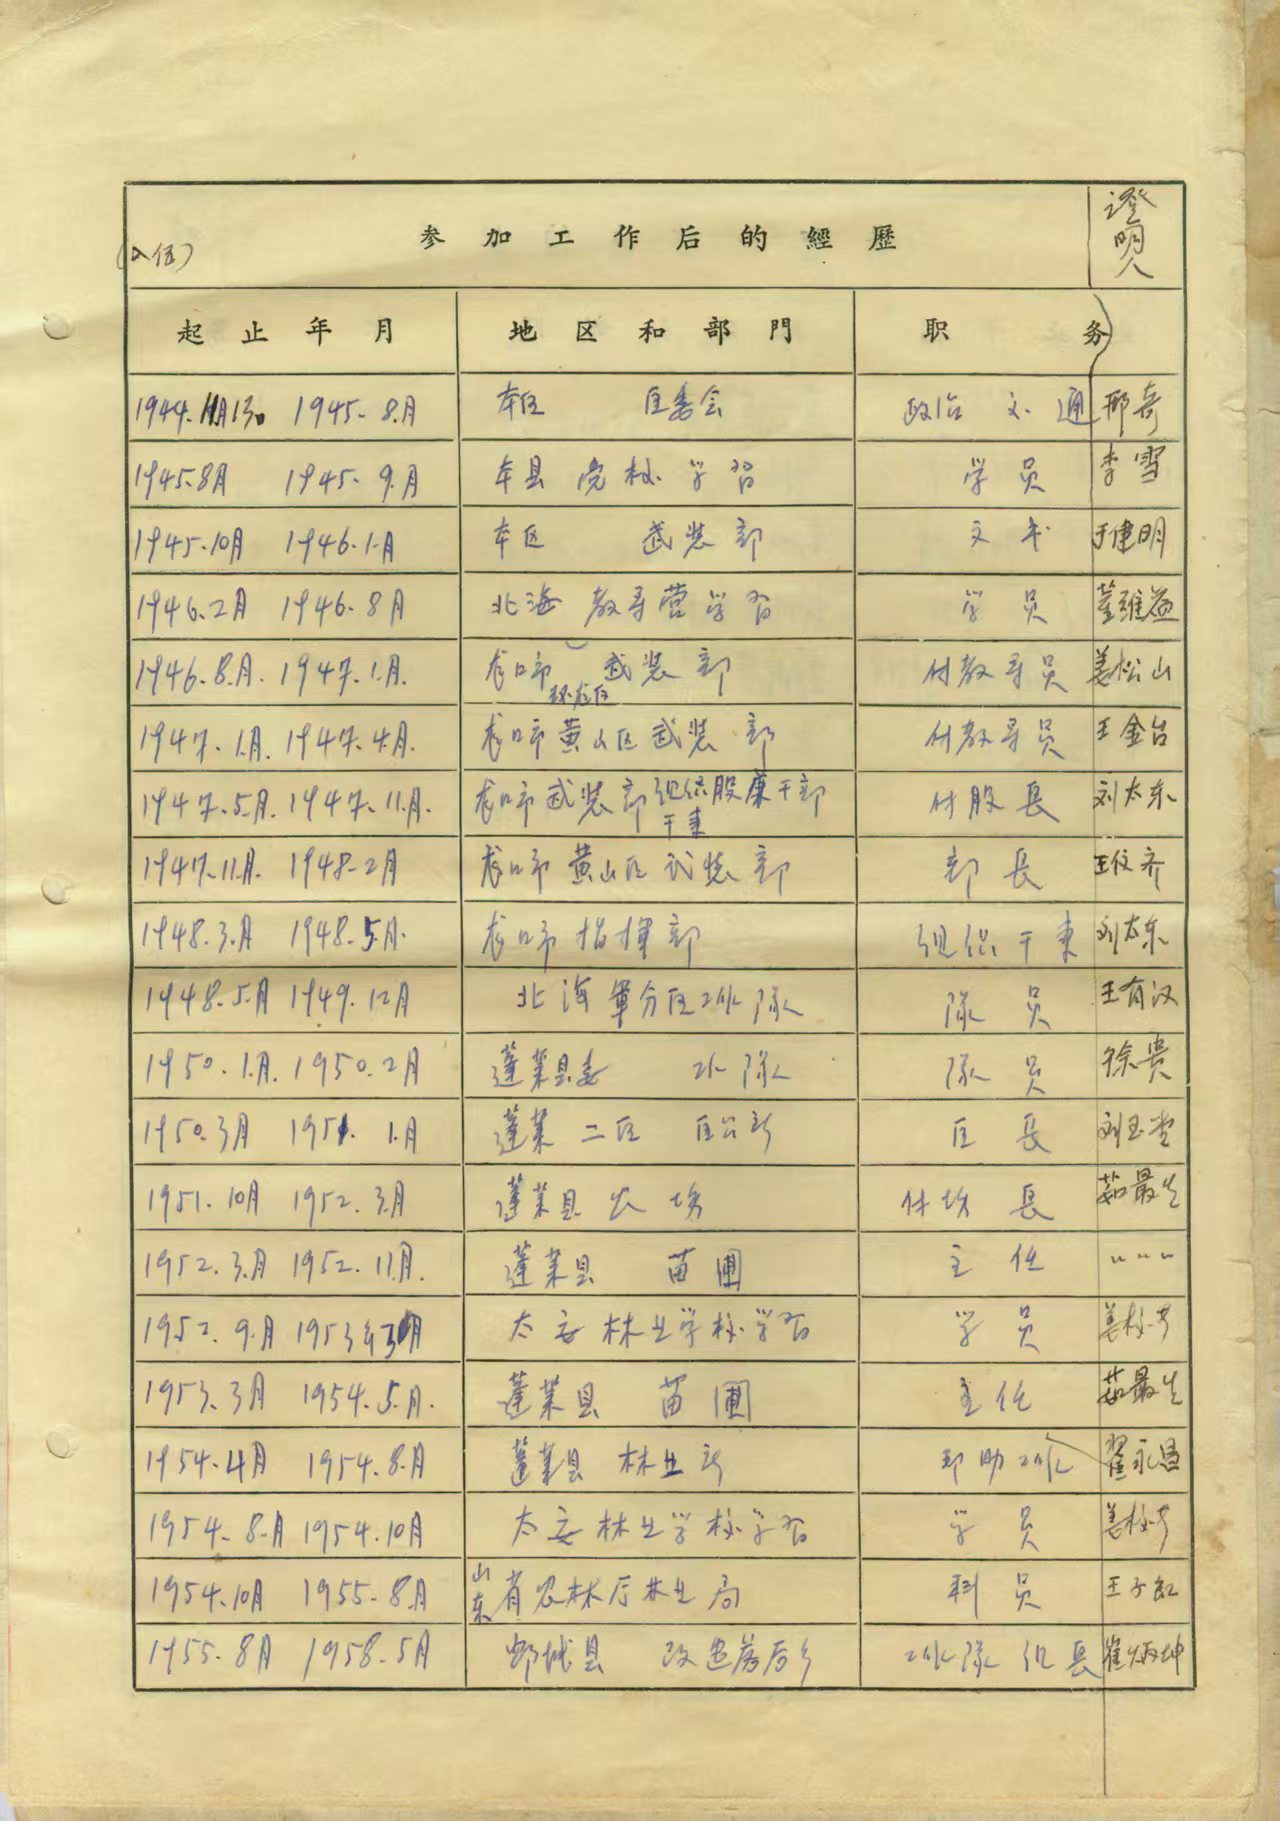 参加工作后的經歷 證明人
(入伍)
起止年月 地区和部門 职务
1944.11月13. 1945.8.月 本区 区委会 政治交通 邢奇
1945.8月 1945.9.月 本县党校学习 学员 李雪
1945.10月 1946.1.月 本区 武装部 文书 于建明
1946.2月 1946.8月 北海教导营学习 学员 董维益
1946.8.月. 1947.1.月. 龙口市 武装部 付教导员 姜松山
环龙区
1947.1.月. 1947.4.月. 龙口市黄山区武装部 付教导员 王金台
1947.5.月. 1947.11.月. 龙口市武装部组织股廉干部 付股長 刘太东
干事
1947.11.月. 1948.2月 龙口市黄山区武装部 部長
1948.3.月 1948.5.月. 龙口市指揮部 组织干事 刘太东
1948.5.月 1949.12月 北海軍分区工作隊 隊员 王有汉
1950.1.月. 1950.2月 蓬莱县委 工作隊 隊员 徐贵
1950.3月 1951.1.月 蓬莱二区 区公所 区長 刘玉堂
1951.10月 1952.3.月 蓬莱县农场 付场長 茹最先
1952.3.月 1952.11.月. 蓬莱县 苗圃 主任 〃〃〃
1952.9.月 1953年3月 太安林业学校学习 学员
1953.3月 1954.5.月. 蓬莱县 苗圃 主任 茹最先
1954.4月 1954.8.月 蓬莱县林业所 邦助工作 翟永昌
1954.8.月 1954.10月 太安林业学校学习 学员
1954.10月 1955.8.月 山东省农林厅林业局 科员
1955.8月 1958.5月 郸城县 改造落后乡 工作隊组長 崔炳坤